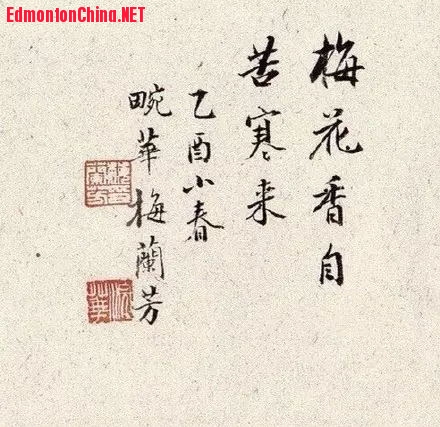 EdmontonChina.NET
梅花香自
苦寒来
乙酉小春
畹華梅蘭芳